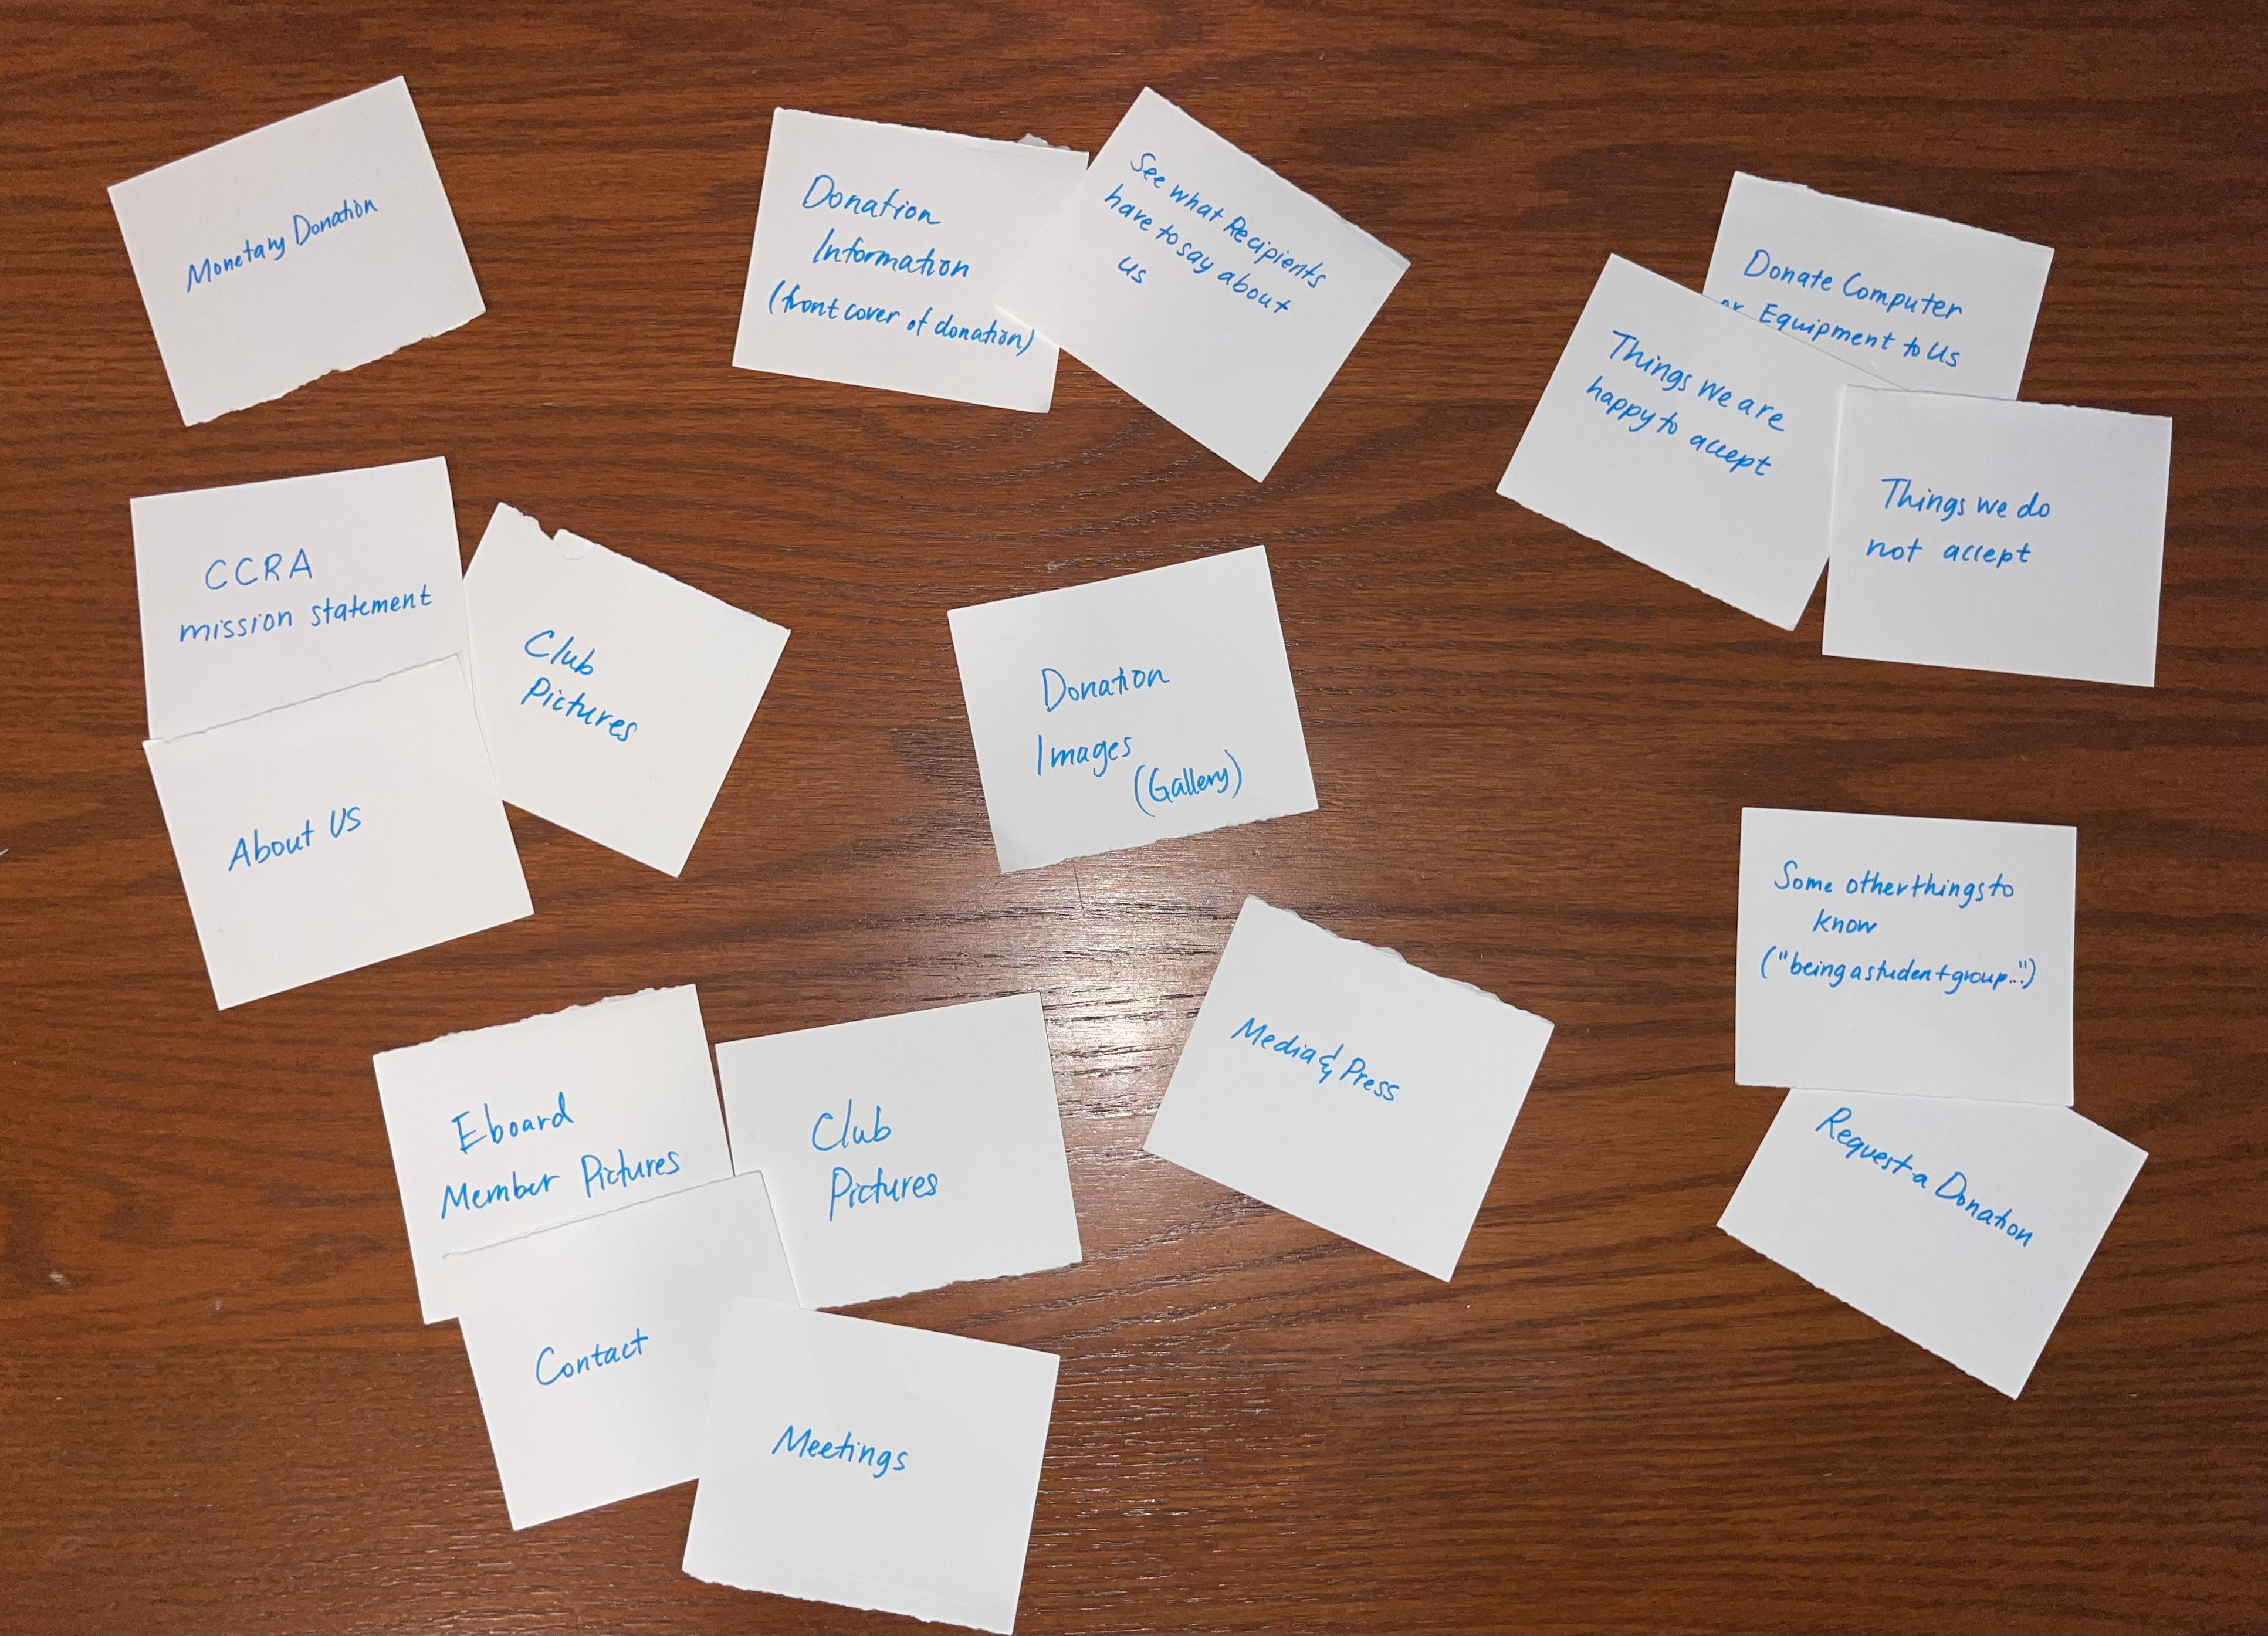 Monetary Donation
Donation
Information
(front cover of donation)
See what Recipients
have to say about
us
Donate Computer
or Equipment to Us
Things we are
happy to accept
Things we do
not accept
CCRA
mission statement
Club
Pictures
About US
Donation
Images
(Gallery)
Some other things to
know
("being a student group...")
Request a Donation
Media & Press
Eboard
Member Pictures
Club
Pictures
Contact
Meetings